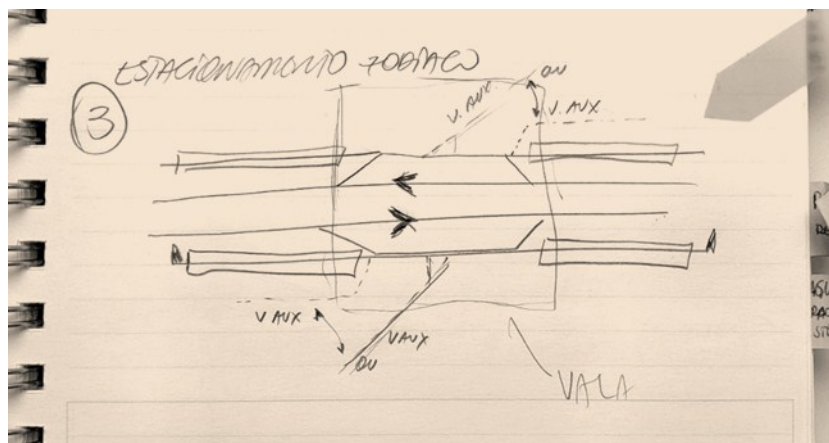 ESTACIONAMENTO ZODÍACO
3
OU
V. AUX.
V. AUX
V AUX
V AUX
OU
VALA